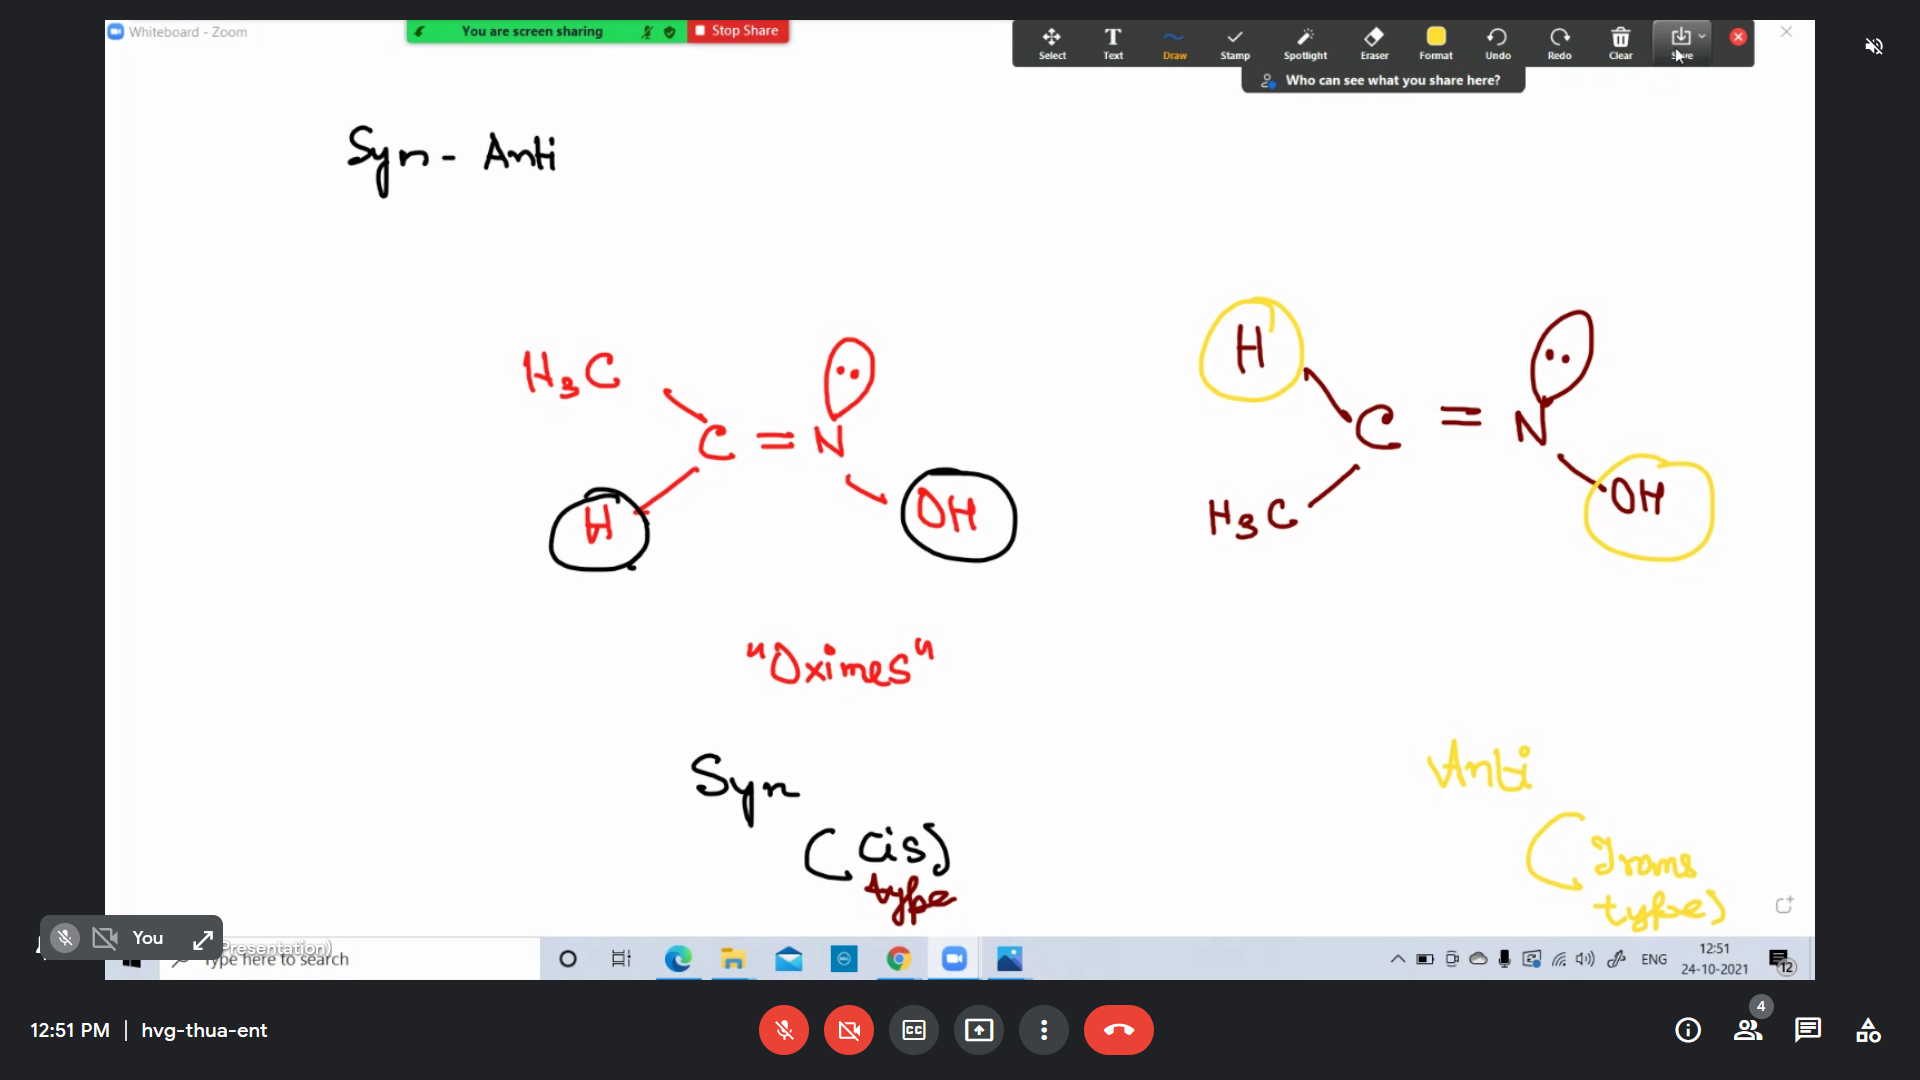 Whiteboard - Zoom
You are screen sharing
Stop Share
Select
Text
Draw
Stamp
Spotlight
Eraser
Format
Undo
Redo
Clear
Save
Who can see what you share here?
Syn - Anti
H₃C
C = N
H
OH
H
C = N
H₃C
OH
"Oximes"
Syn
(Cis)
type
Anti
(Trans
type)
You
Presentation)
Type here to search
ENG
12:51
24-10-2021
12
12:51 PM | hvg-thua-ent
CC
4